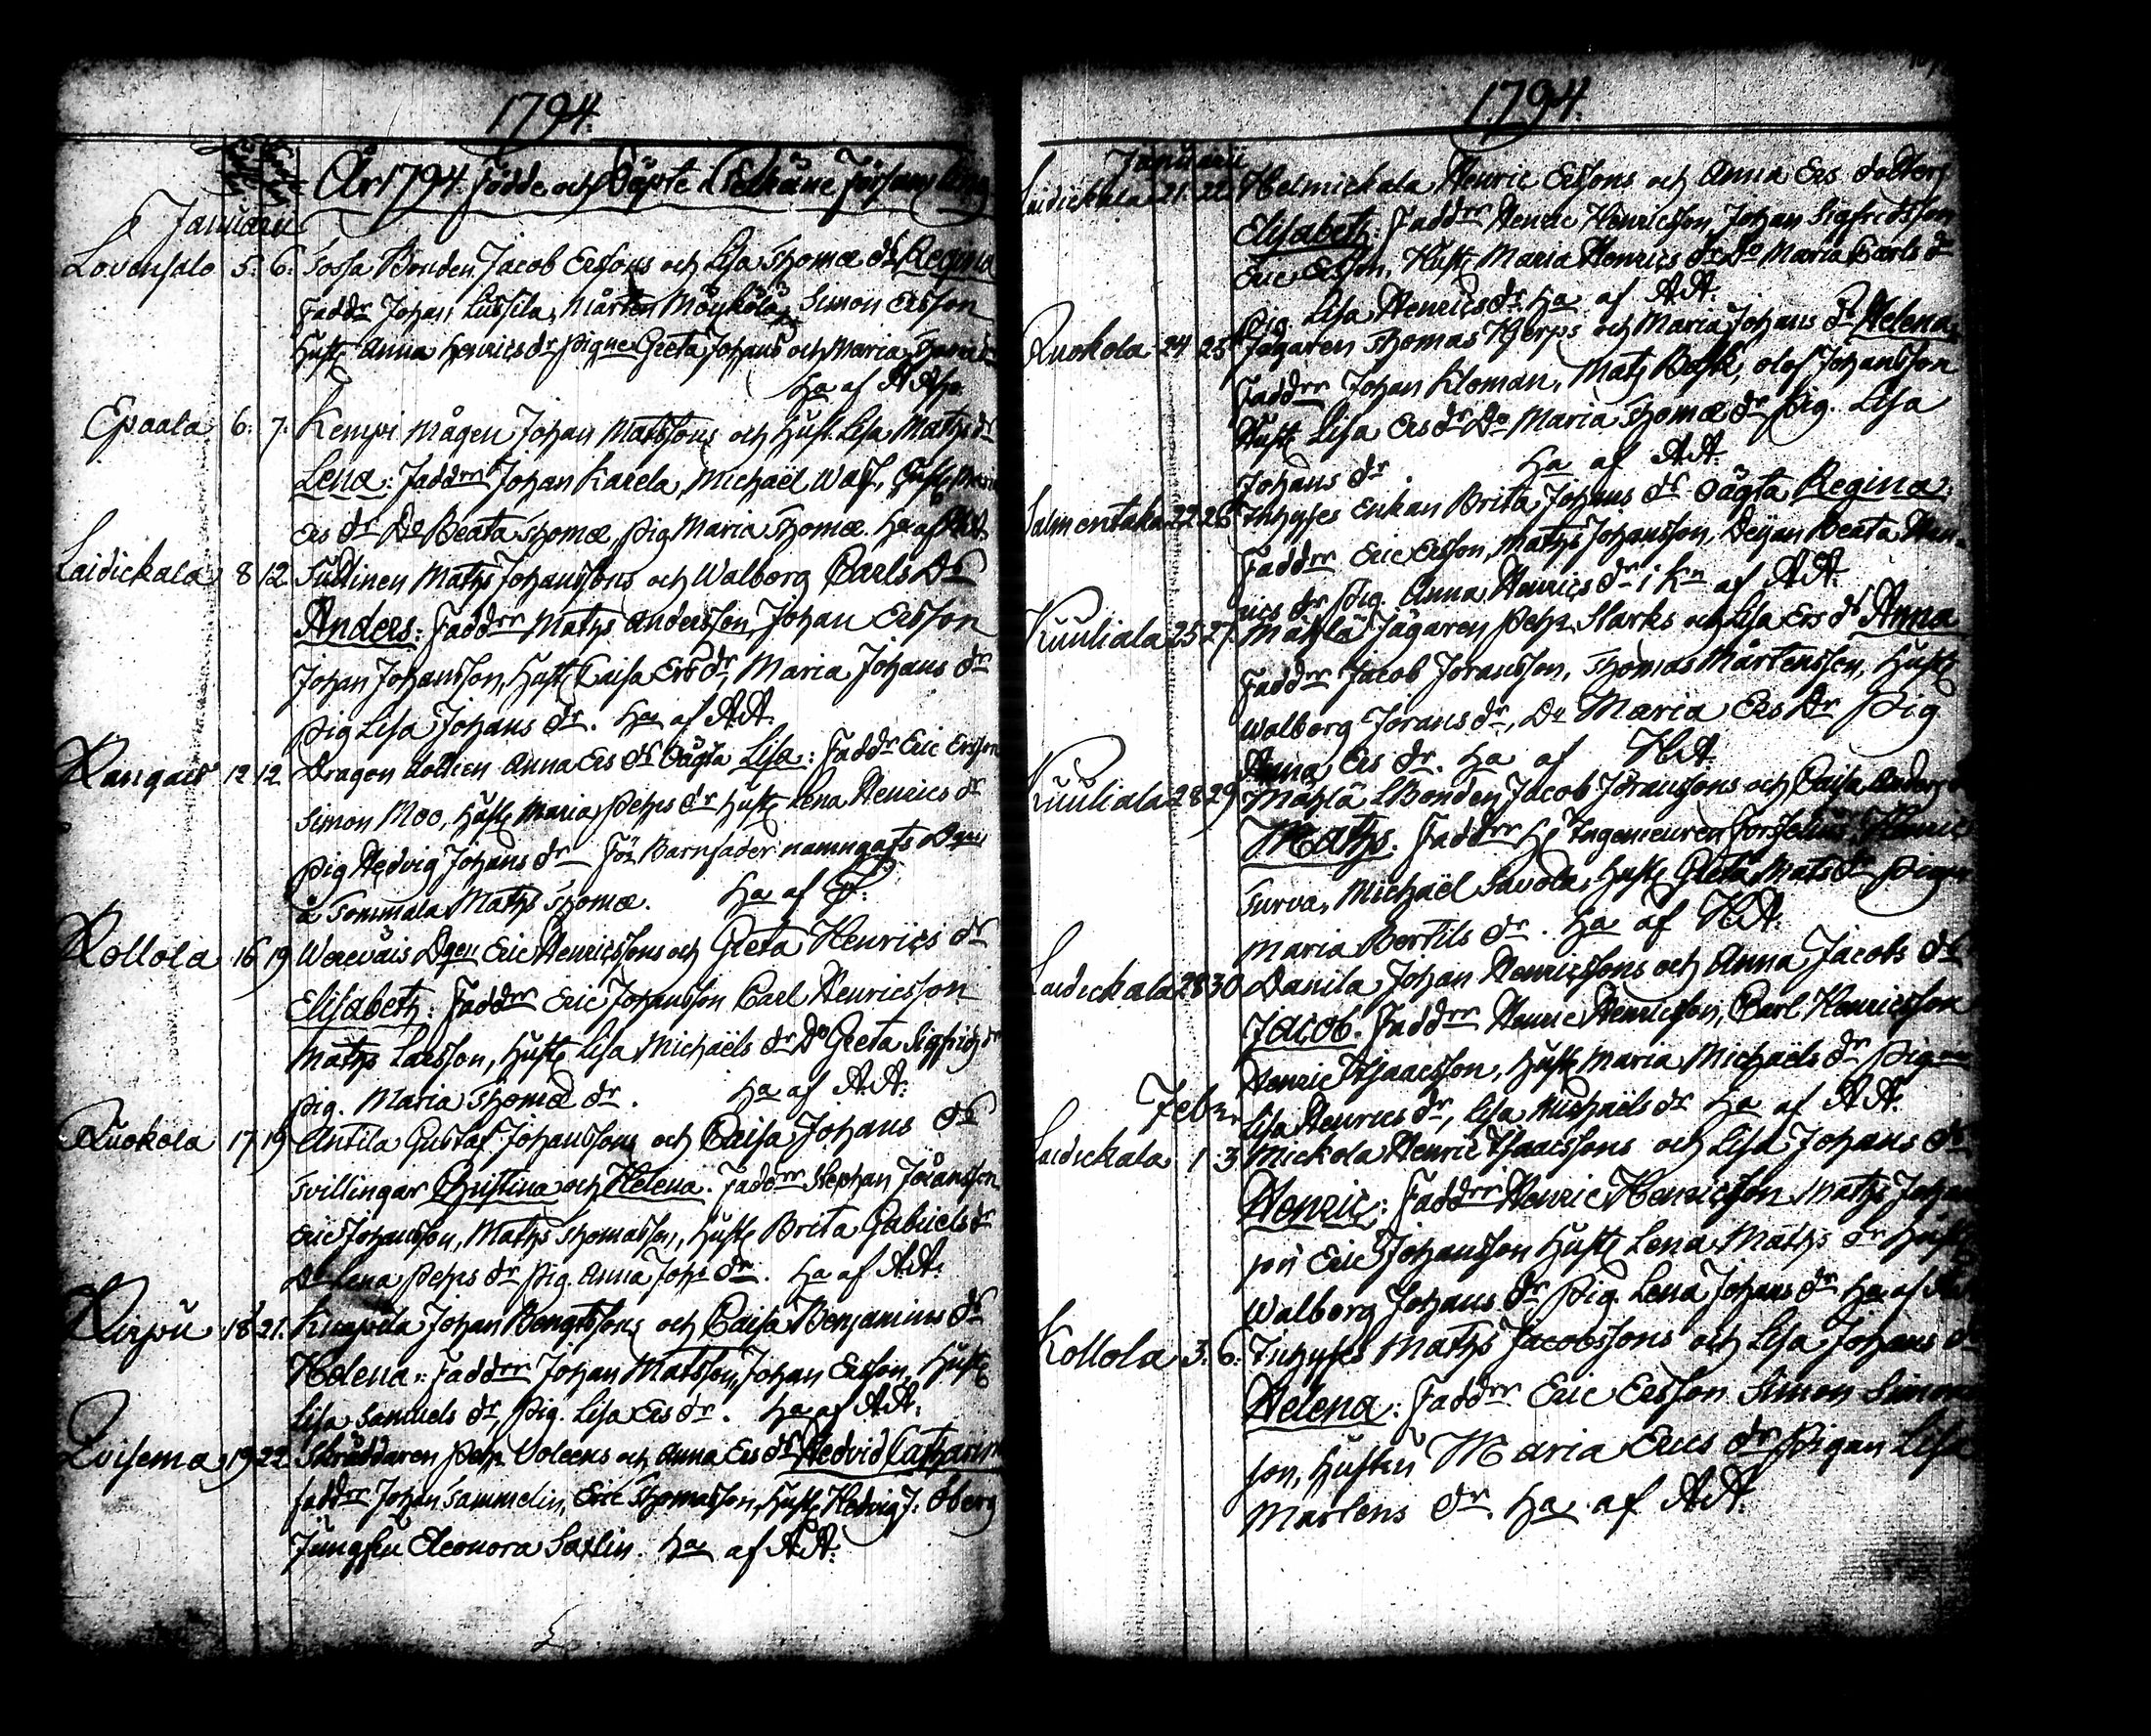 1794.
År 1794. Födde och Döpte i Pelkäne Församling
Januarii
Lovensalo 5. 6. Sossa Bonden Jacob Erssons och Lisa Thomæ dr Regina
Faddr Johan Lussila, Mårten Möykölä, Simon Ersson
Hustr Anna Henrics dr Pigne Greta Johans och Maria
Ha af AA
Epaala 6. 7. Kempi Mågen Johan Matssons och Hust. Lisa Maths dr
Lena: Faddrr Johan Karela, Michaël Walf, Hustr Maria
Ers dr Do Beata Thomæ, Pig Maria Thomæ. Ha af AA
Laidickala 8 12 Maths Johanssons och Walborg Carls Dr
Anders: Faddrr Maths Andersson, Johan Ersson
Johan Johansson, Hustr Caisa Ers dr, Maria Johans dr
Pig Lisa Johans dr. Ha af AA.
12 12 Dragon Anna Ers dr Oägta Lisa: Faddr Eric Ersson
Simon Moo, Hustr Maria Pehrs dr Hustr Lena Henrics dr
Pig Hedvig Johans dr För Barnfader namngafs Dgen
å Sommala Maths Thomæ. Ha af
Kollola 16 19 Wereväis Dgen Eric Henricssons och Greta Henrics dr
Elisabeth: Faddrr Eric Johansson Carl Henricsson
Maths Larsson, Hustr Lisa Michaels dr Do Greta Sigfrids dr
Pig. Maria Thomæ dr. Ha af AA.
Ruokola 17 19 Antila Gustaf Johanssons och Caisa Johans dr
Tvillingar Christina och Helena. Faddrr Stephan Johansson
Eric Johansson, Maths Thomasson, Hustr Brita Gabriels dr
Do Lena Pehrs dr Pig. Anna Joh: dr. Ha af AA.
18 21. Johan Bengtssons och Caisa Benjamins dr
Helena: Faddrr Johan Matsson, Johan Ersson, Hustr
Lisa Samuels dr, Pig. Lisa Ers dr. Ha af AA.
19 22 Skräddaren Pehr Voleens och Anna Ers dr Hedvid Catharina
Faddrr Johan Sammelin, Eric Thomasson, Hustr Hedvig J. Öberg
Jungfru Eleonora Saxlin. Ha af AA.
1794.
Januarii
Laidickala 21. 22 Helmickala Henric Erssons och Anna Ers dotters
Elisabeth: Faddrr Henric Henricsson, Johan Sigfredsson
Eric Ersson, Hustr Maria Henrics dr Do Maria Carls dr
Pig. Lisa Henrics dr. Ha af AA.
Ruokola 24 25 Jägaren Thomas Kjerps och Maria Johans dr Helena,
Faddrr Johan Kloman, Mats Bask, Olof Johansson
Hustr Lisa Ers dr Do Maria Thomæ dr Pig. Lisa
Johans dr. Ha af AA.
Salmentaka 22 26 Inhyses Enkan Brita Johans dr Oägta Regina:
Faddrr Eric Ersson, Maths Johansson, Deijan Beata Hen-
rics dr Pig. Anna Henrics dr i Kn af AA.
Kuuliala 25 27. Mählä Jägaren Pehr Starks och Lisa Ers dr Anna
Faddrr Jacob Joransson, Thomas Mårtensson, Hustr
Walborg Jorans dr, Do Maria Ers Dr Pig
Anna Ers dr. Ha af HA.
Kuuliala 28 29 Mählä Bonden Jacob Joranssons och Caisa Anders
Maths. Faddrr Hr Ingenieuren Forsselius, Henric
Surva, Michaël Savola, Hustr Greta Mats dr Pigan
Maria Bertils dr. Ha af HA.
Laidickala 28 30 Danila Johan Henricssons och Anna Jacobs dr
Jacob. Faddrr Henric Henricsson, Carl Henricsson
Henric Isaacsson, Hustr Maria Michaels dr Pigan
Lisa Henrics dr, Lisa Michaels dr Ha af AA.
Febr.
Laidickala 1 3 Mickola Henric Isaacssons och Lisa Johans dr
Henric: Faddrr Henric Henricsson Maths Johans
son Eric Johansson Hustr Lena Maths dr Hustr
Walborg Johans dr, Pig. Lena Johans dr Ha af AA
Kollola 3. 6. Inhyses Maths Jacobssons och Lisa Johans dr
Helena: Faddrr Eric Ersson Simon Simons
son, Hustru Maria Erics dr Pigan Lisa
Martens dr. Ha af AA.